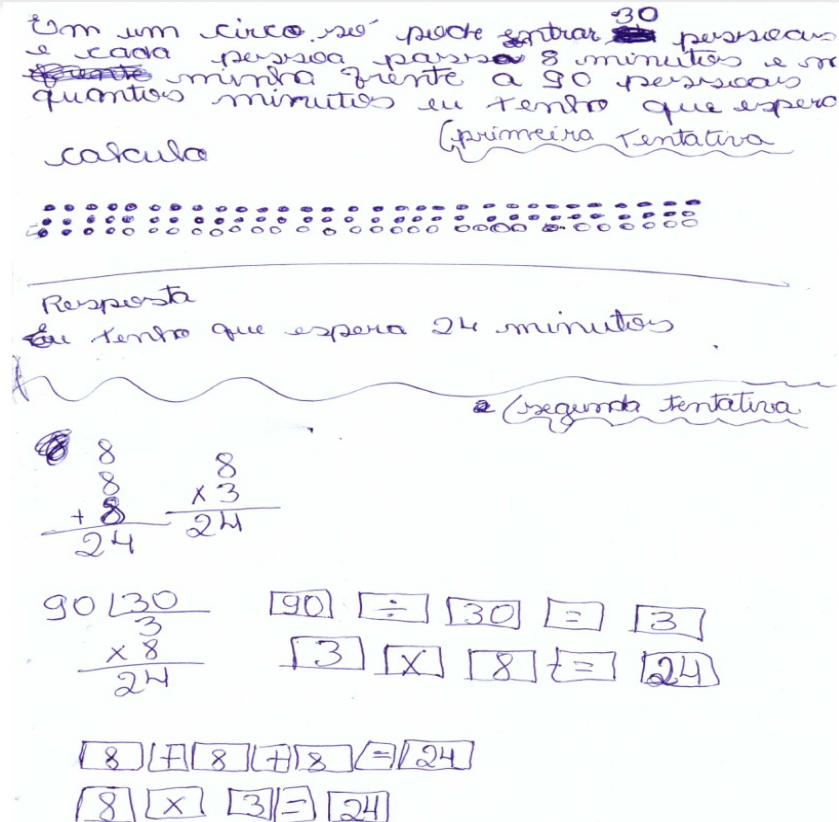 Em um circo só pode entrar 30 pessoas
e cada pessoa passa 8 minutos e n
minha frente a 90 pessoas
quantos minutos eu tenho que espero
(primeira Tentativa
calculo
Resposta
Eu tenho que espera 24 minutos
(segunda tentativa
8
8 8
+ 8 x 3
24 24
90 30 90 ÷ 30 = 3
3
x 8 3 x 8 = 24
24
8 + 8 + 8 = 24
8 x 3 = 24